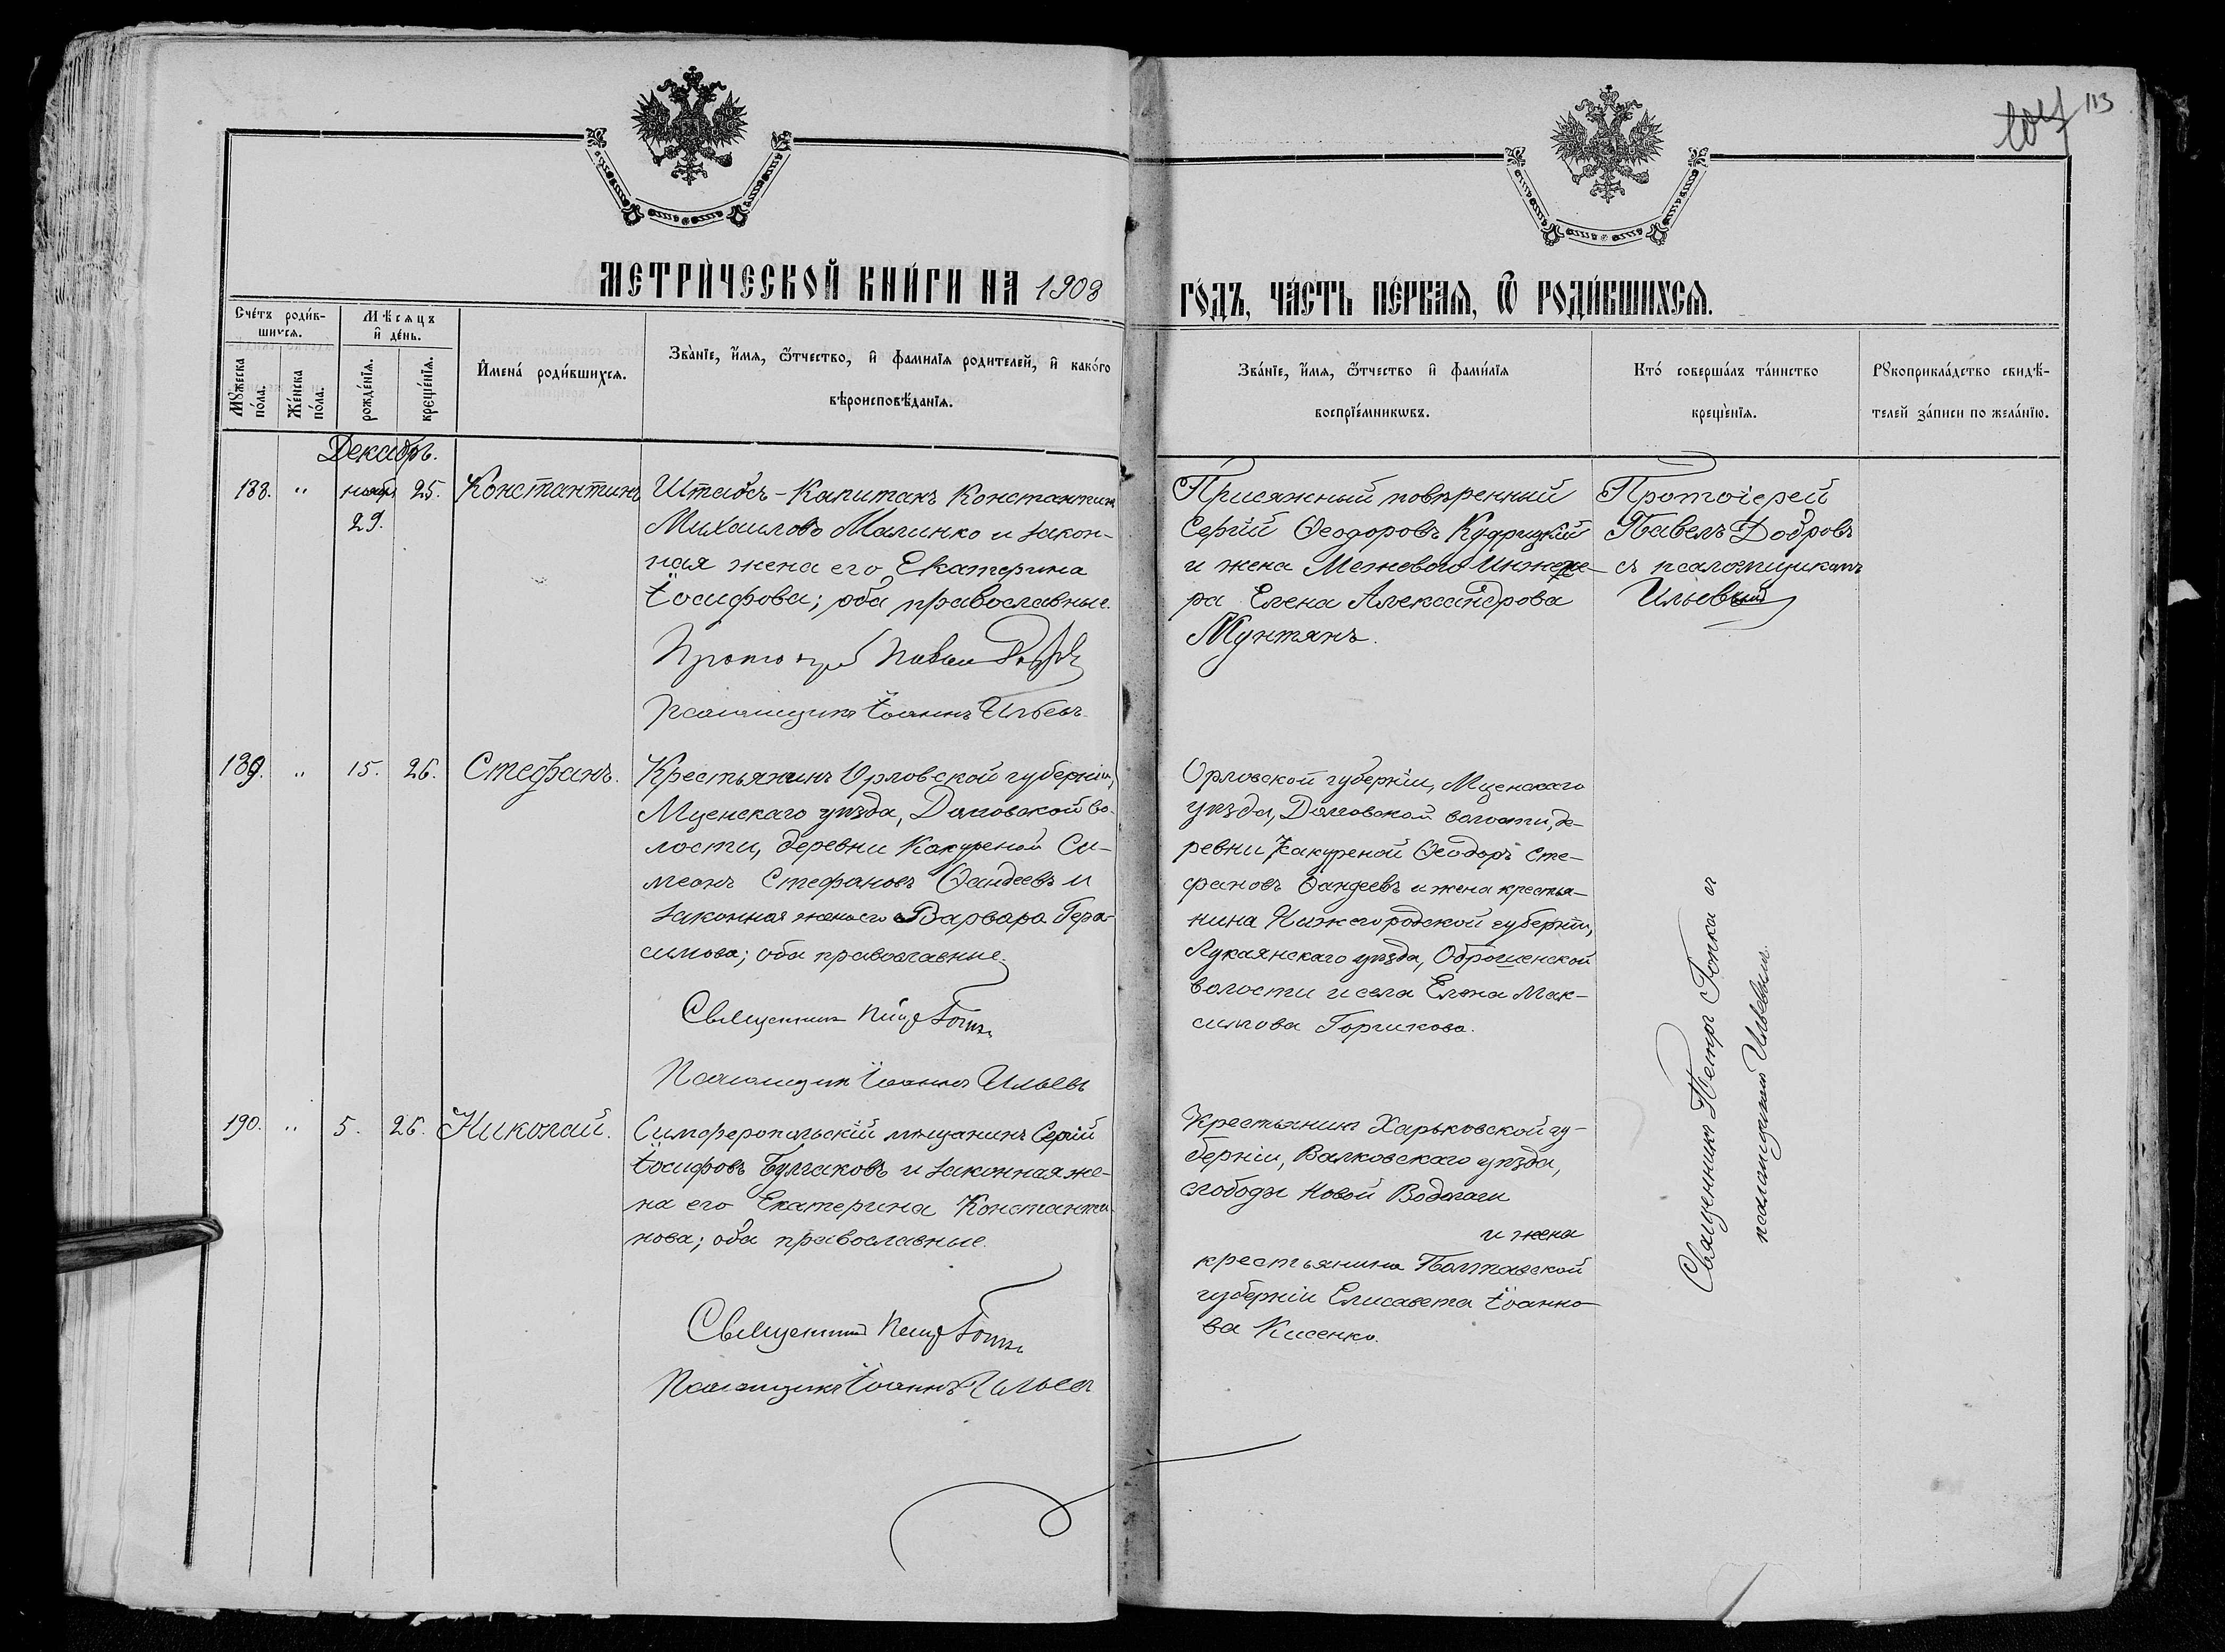 113
МЕТРИ́ЧЕСКОЙ КНИ́ГИ НА 1908
ГО́ДЪ, ЧА́СТЬ ПЕ́РВАЯ, Ѿ РОДИ́ВШИХСЯ.
Сче́тъ роди́в-
шихся.
Мꙋ́жеска по́ла.
Же́нска по́ла.
Мѣ́сяцъ
и҆ де́нь.
рожде́нїѧ.
креще́нїѧ.
И҆мена̀ роди́вшихся.
Зва́нїе, и҆́мѧ, ѻ҆́тчество, и҆ фами́лїѧ роди́телей, и҆ како́гѡ
вѣроисповѣ́данїѧ.
Зва́нїе, и҆́мѧ, ѻ҆́тчество и҆ фами́лїѧ
воспрїе́мникѡвъ.
Кто̀ соверша́лъ та́инство
креще́нїѧ.
Рꙋкоприкла́дство свидѣ́-
телей за́писи по жела́нїю.
Декабрь.
188. " ноябр 29. 25. Константинъ
Штабсъ-Капитанъ Константинъ
Михаиловъ Малинко и закон-
ная жена его Екатерина
Іосифова; оба православные.
Протоіерей Павелъ Добровъ
Псаломщикъ Іоаннъ Ильевъ
Присяжный повѣренный
Сергій Ѳеодоровъ Кудрицкій
и жена Межевого Инжене-
ра Елена Александрова
Мунтянъ.
Протоіерей
Павелъ Добровъ
съ псаломщикомъ
Ильевымъ
189. " 15. 26. Стефанъ.
Крестьянинъ Орловской губерніи,
Мценскаго уѣзда, Домовской во-
лости, деревни Кокуреной Си-
меонъ Стефановъ Ѳандеевъ и
законная жена его Варвара Гера-
симова; оба православные.
Священникъ Петръ Гопка
Псаломщикъ Іоаннъ Ильевъ
Орловской губерніи, Мценскаго
уѣзда, Домовской волости, де-
ревни Какуреной Ѳеодоръ Сте-
фановъ Ѳандеевъ и жена крестья-
нина Нижегородской губерніи,
Лукаянскаго уѣзда, Оброшенской
волости и села Елена Мак-
симова Горшкова.
Священникъ Петръ Гопка съ
псаломщикомъ Ильевымъ.
190. " 5. 26. Николай.
Симферопольскій мѣщанинъ Сергій
Іосифовъ Булгаковъ и законная же-
на его Екатерина Константи-
нова; оба православные.
Священникъ Петръ Гопка
Псаломщикъ Іоаннъ Ильевъ
Крестьянинъ Харьковской гу-
берніи, Валковскаго уѣзда,
слободы Новой Водолаги
и жена
крестьянина Полтавской
губерніи Елисавета Іоанно-
ва Кисенко.